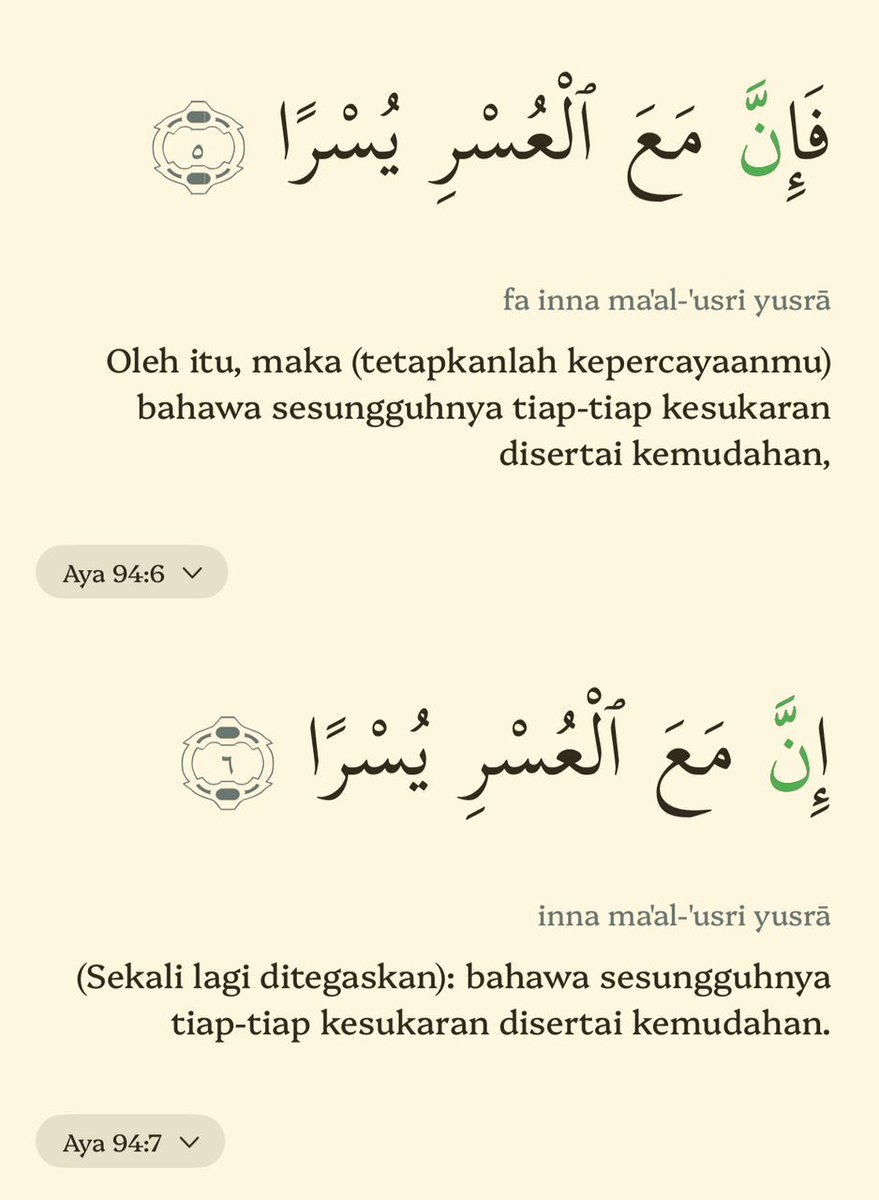 فَإِنَّ مَعَ ٱلْعُسْرِ يُسْرًا ٥
fa inna ma'al-'usri yusrā
Oleh itu, maka (tetapkanlah kepercayaanmu)
bahawa sesungguhnya tiap-tiap kesukaran
disertai kemudahan,
Aya 94:6
إِنَّ مَعَ ٱلْعُسْرِ يُسْرًا ٦
inna ma'al-'usri yusrā
(Sekali lagi ditegaskan): bahawa sesungguhnya
tiap-tiap kesukaran disertai kemudahan.
Aya 94:7